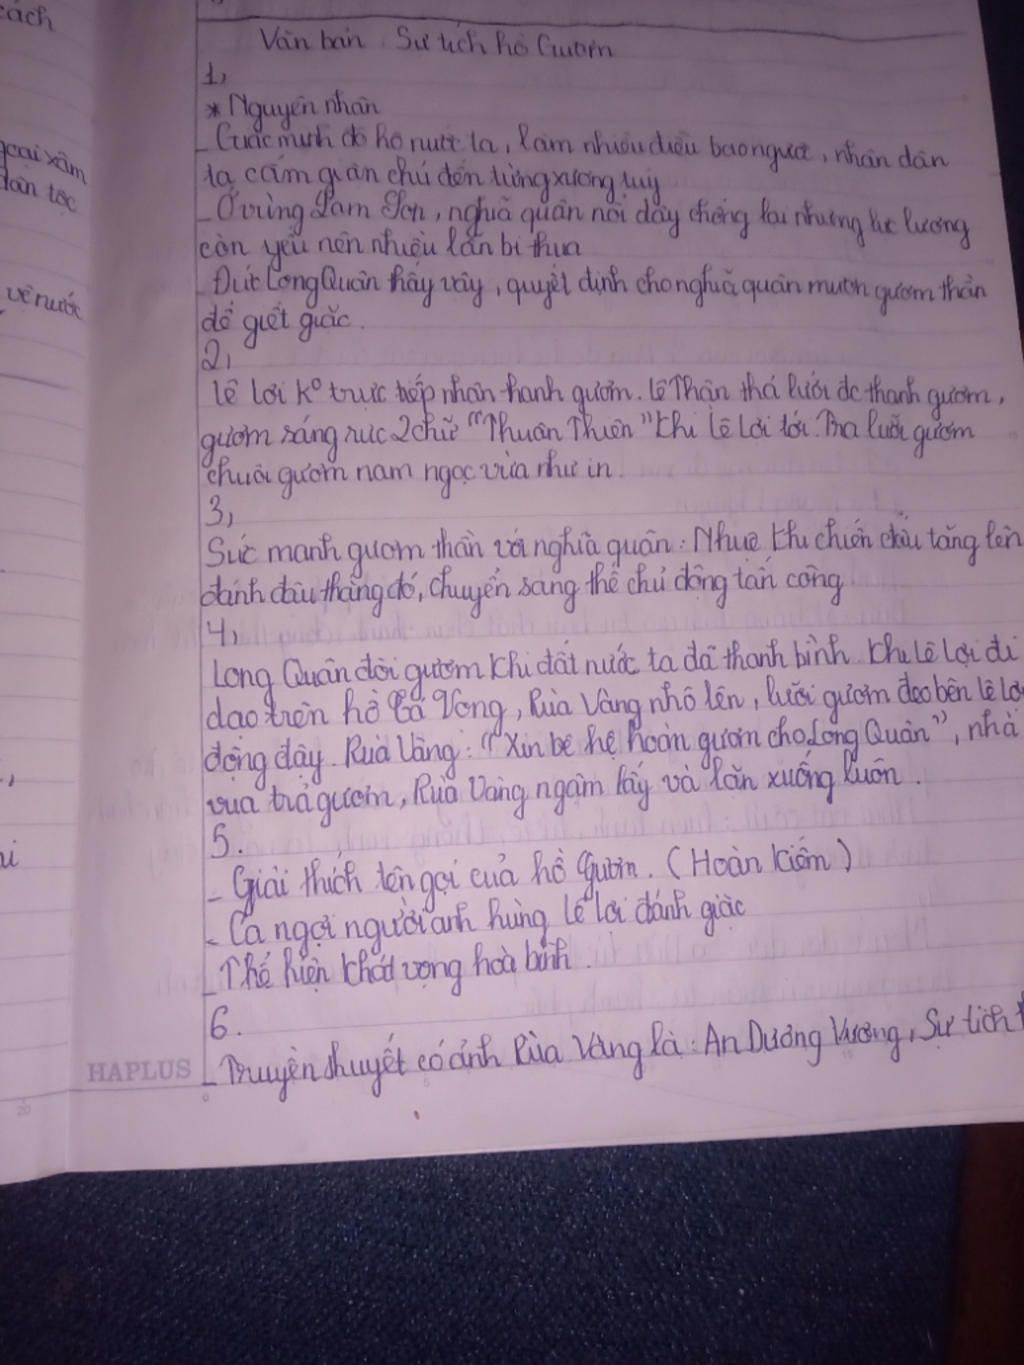 cách
Văn bản Sự tích hồ Gươm
1,
* Nguyên nhân
- Giặc minh đô hộ nước ta, làm nhiều điều bạo ngược, nhân dân
ta căm giận chúng đến từng xương tuỷ
- Ở vùng Lam Sơn, nghĩa quân nổi dậy chống lại nhưng lực lượng
còn yếu nên nhiều lần bị thua
- Đức Long Quân thấy vậy, quyết định cho nghĩa quân mượn gươm thần
để giết giặc.
2,
lê lợi ko trực tiếp nhận thanh gươm. lê Thận thả lưới đc thanh gươm,
gươm sáng rực 2 chữ "Thuận Thiên" khi lê Lợi tới. Tra lưỡi gươm
chuôi gươm nạm ngọc vừa như in.
3,
Sức mạnh gươm thần với nghĩa quân: Nhuệ khí chiến đấu tăng lên
đánh đâu thắng đó, chuyển sang thế chủ động tấn công
4,
Long Quân đòi gươm khi đất nước ta đã thanh bình. Khi Lê Lợi đi
dạo trên hồ Tả Vọng, Rùa Vàng nhô lên, lưỡi gươm đeo bên lê Lợi
động đậy. Rùa Vàng: "Xin bệ hệ hoàn gươm cho Long Quân", nhà
vua trả gươm, Rùa Vàng ngậm lấy và lặn xuống luôn.
5.
- Giải thích tên gọi của hồ Gươm. (Hoàn Kiếm)
- Ca ngợi người anh hùng lê lợi đánh giặc
- Thể hiện khát vọng hoà bình.
6.
- Truyền thuyết có ảnh Rùa Vàng là: An Dương Vương, Sự tích
HAPLUS
xâm
dân tộc
về nước